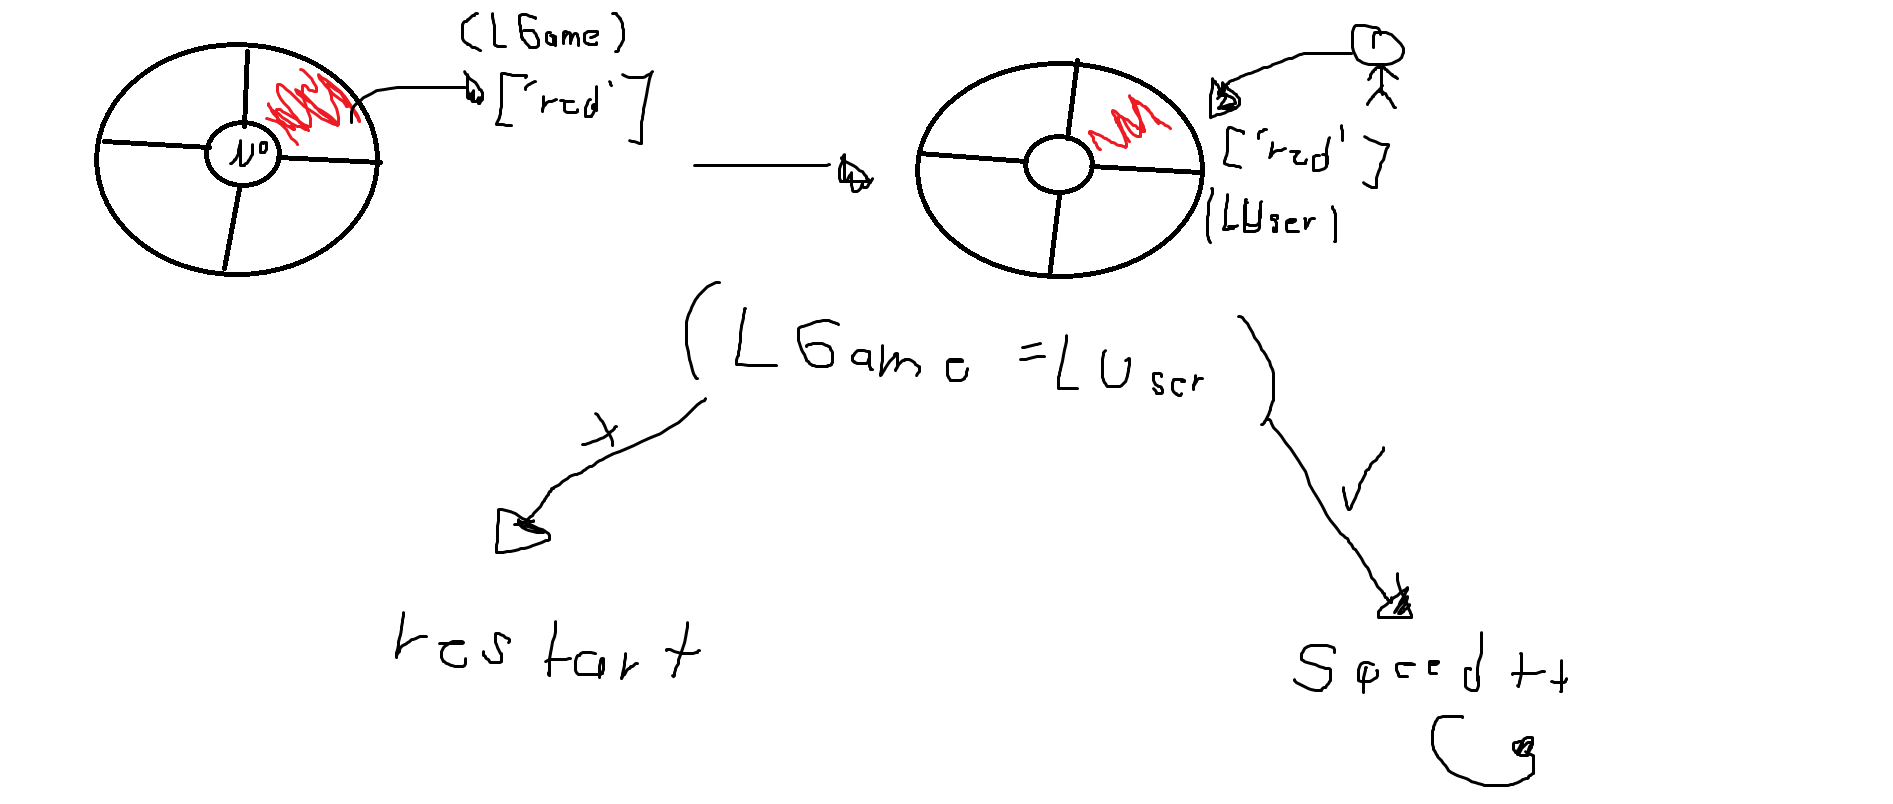 (LGame)
['red']
N°
['red']
(LUser)
(LGame = LUser)
restart
Speed ++